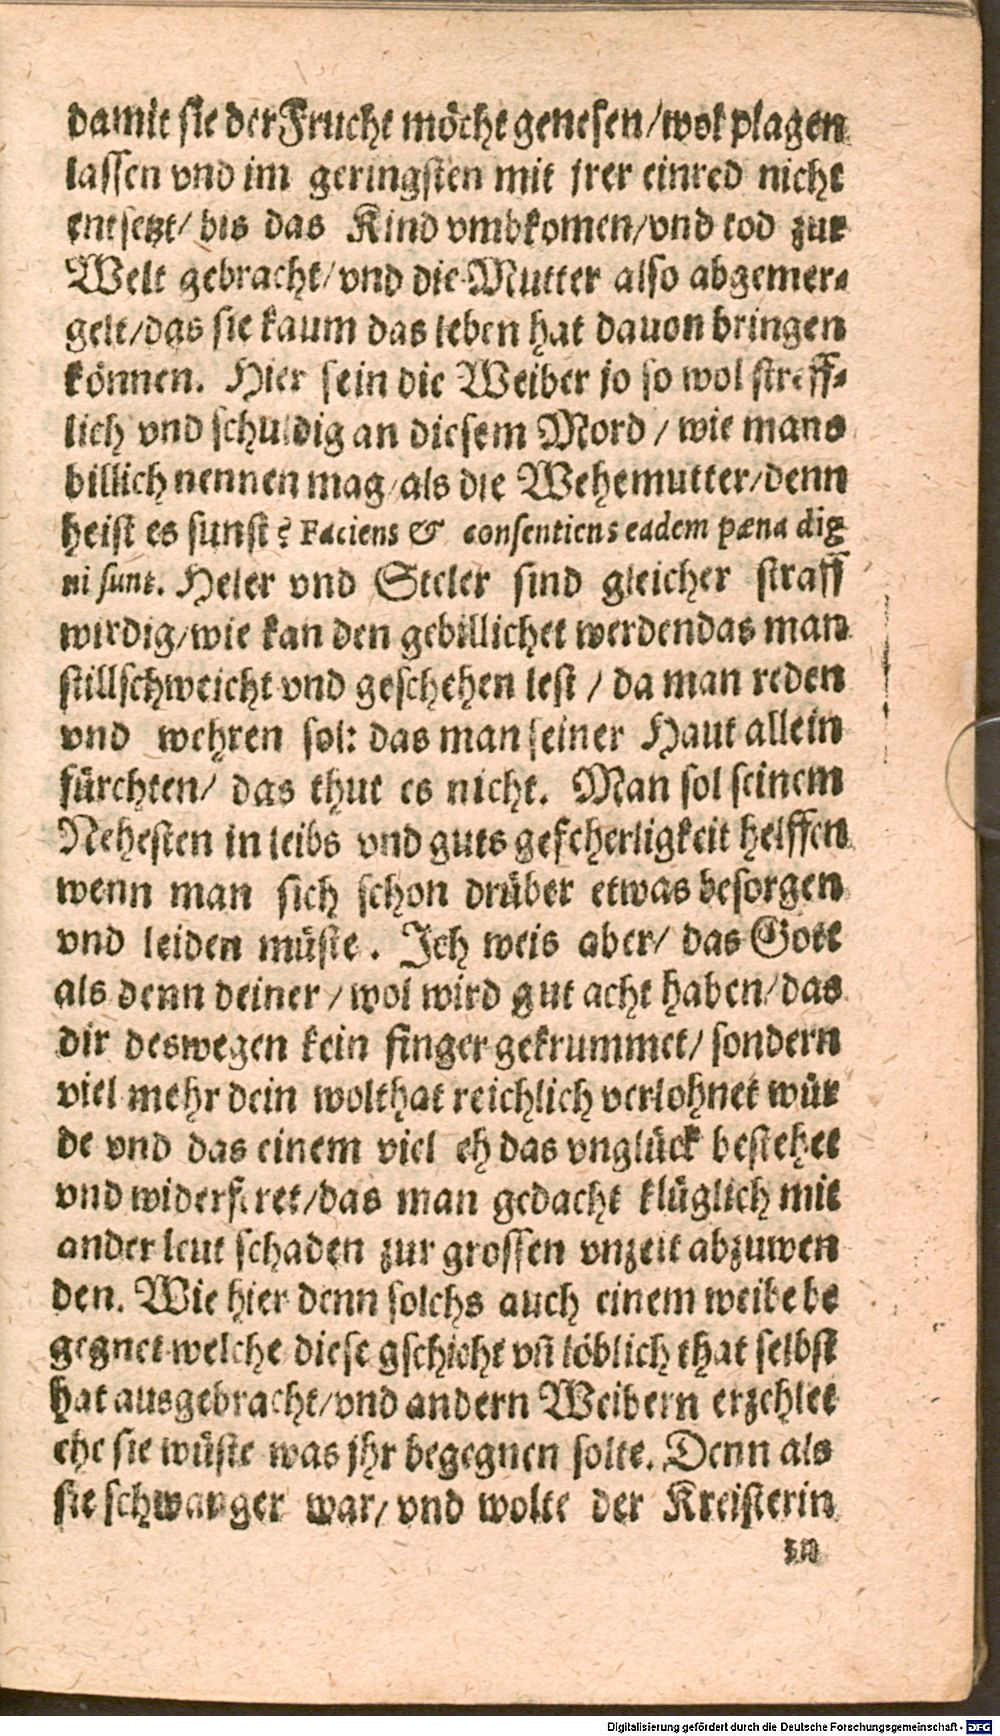 damit sie der Frucht möcht genesen/wol plagen
lassen vnd im geringsten mit jrer einred nicht
entsetzt/ bis das Kind vmbkomen/vnd tod zur
Welt gebracht/vnd die Mutter also abgemer⸗
gelt/das sie kaum das leben hat dauon bringen
können. Hier sein die Weiber jo so wol streff⸗
lich vnd schuldig an diesem Mord / wie mans
billich nennen mag/als die Wehemutter/denn
heist es sunst? Faciens & consentiens eadem pæna dig
ni sunt. Heler vnd Steler sind gleicher straff
wirdig/wie kan den gebillichet werden das man
stillschweicht vnd geschehen lest / da man reden
vnd wehren sol: das man seiner Haut allein
fürchten/ das thut es nicht. Man sol seinem
Nehesten in leibs vnd guts gefeherligkeit helffen
wenn man sich schon drüber etwas besorgen
vnd leiden müste. Ich weis aber/ das Gott
als denn deiner / wol wird gut acht haben/das
dir deswegen kein finger gekrummet/ sondern
viel mehr dein wolthat reichlich verlohnet wür
de vnd das einem viel eh das vnglück bestehet
vnd widerferet/das man gedacht klüglich mit
ander leut schaden zur grossen vnzeit abzuwen
den. Wie hier denn solchs auch einem weibe be
gegnet welche diese gschicht vñ löblich that selbst
hat ausgebracht/vnd andern Weibern erzehlet
ehe sie wüste was jhr begegnen solte. Denn als
sie schwanger war/ vnd wolte der Kreisterin
Digitalisierung gefördert durch die Deutsche Forschungsgemeinschaft - DFG